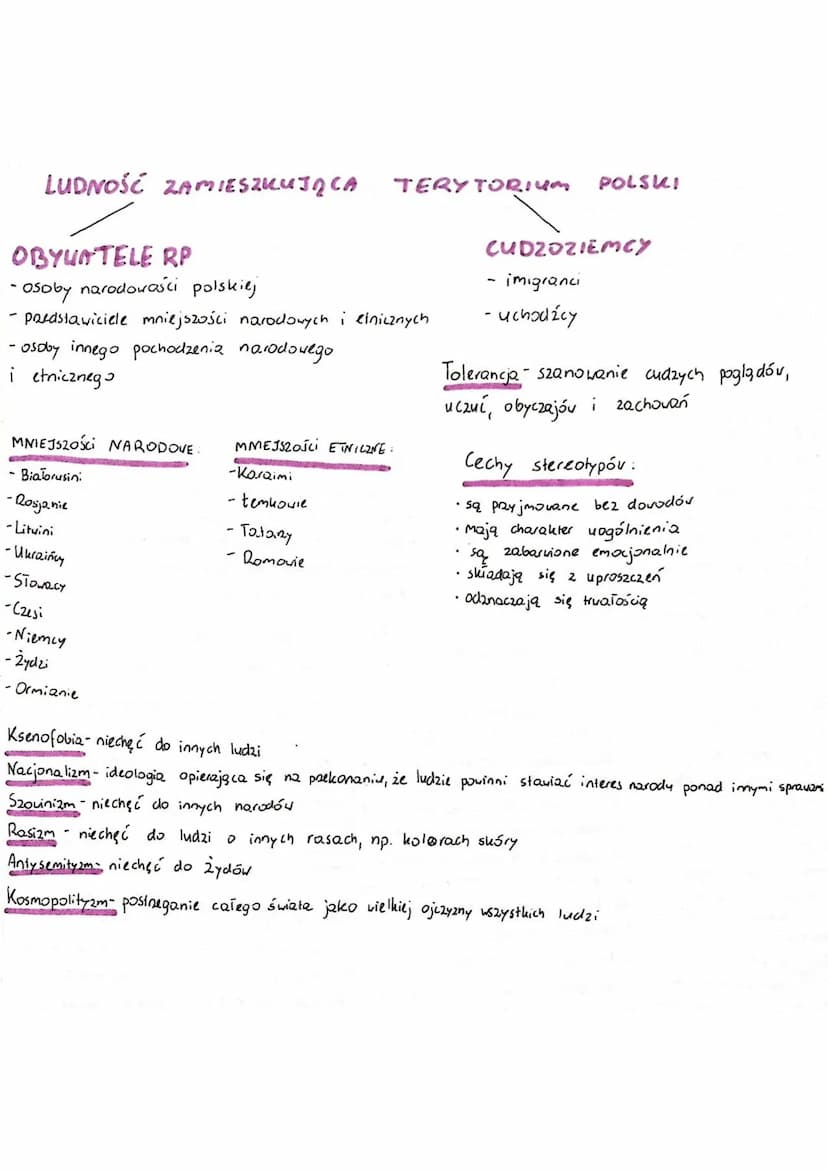 LUDNOŚĆ ZAMIESZKUJĄCA TERYTORIUM POLSKI
OBYWATELE RP
- osoby narodowości polskiej
- przedstawiciele mniejszości narodowych i etnicznych
- osoby innego pochodzenia narodowego
i etnicznego
CUDZOZIEMCY
- imigranci
- uchodźcy
Tolerancja - szanowanie cudzych poglądów,
uczuć, obyczajów i zachowań
MNIEJSZOŚCI NARODOWE:
- Białorusini
- Rosjanie
- Litwini
- Ukraińcy
- Słowacy
- Czesi
- Niemcy
- Żydzi
- Ormianie
MNIEJSZOŚCI ETNICZNE:
- Karaimi
- Łemkowie
- Tatarzy
- Romowie
Cechy stereotypów:
• są przyjmowane bez dowodów
• mają charakter uogólnienia
• są zabarwione emocjonalnie
• składają się z uproszczeń
• odznaczają się trwałością
Ksenofobia - niechęć do innych ludzi
Nacjonalizm - ideologia opierająca się na przekonaniu, że ludzie powinni stawiać interes narodu ponad innymi sprawami
Szowinizm - niechęć do innych narodów
Rasizm - niechęć do ludzi o innych rasach, np. kolorach skóry
Antysemityzm - niechęć do Żydów
Kosmopolityzm - postrzeganie całego świata jako wielkiej ojczyzny wszystkich ludzi